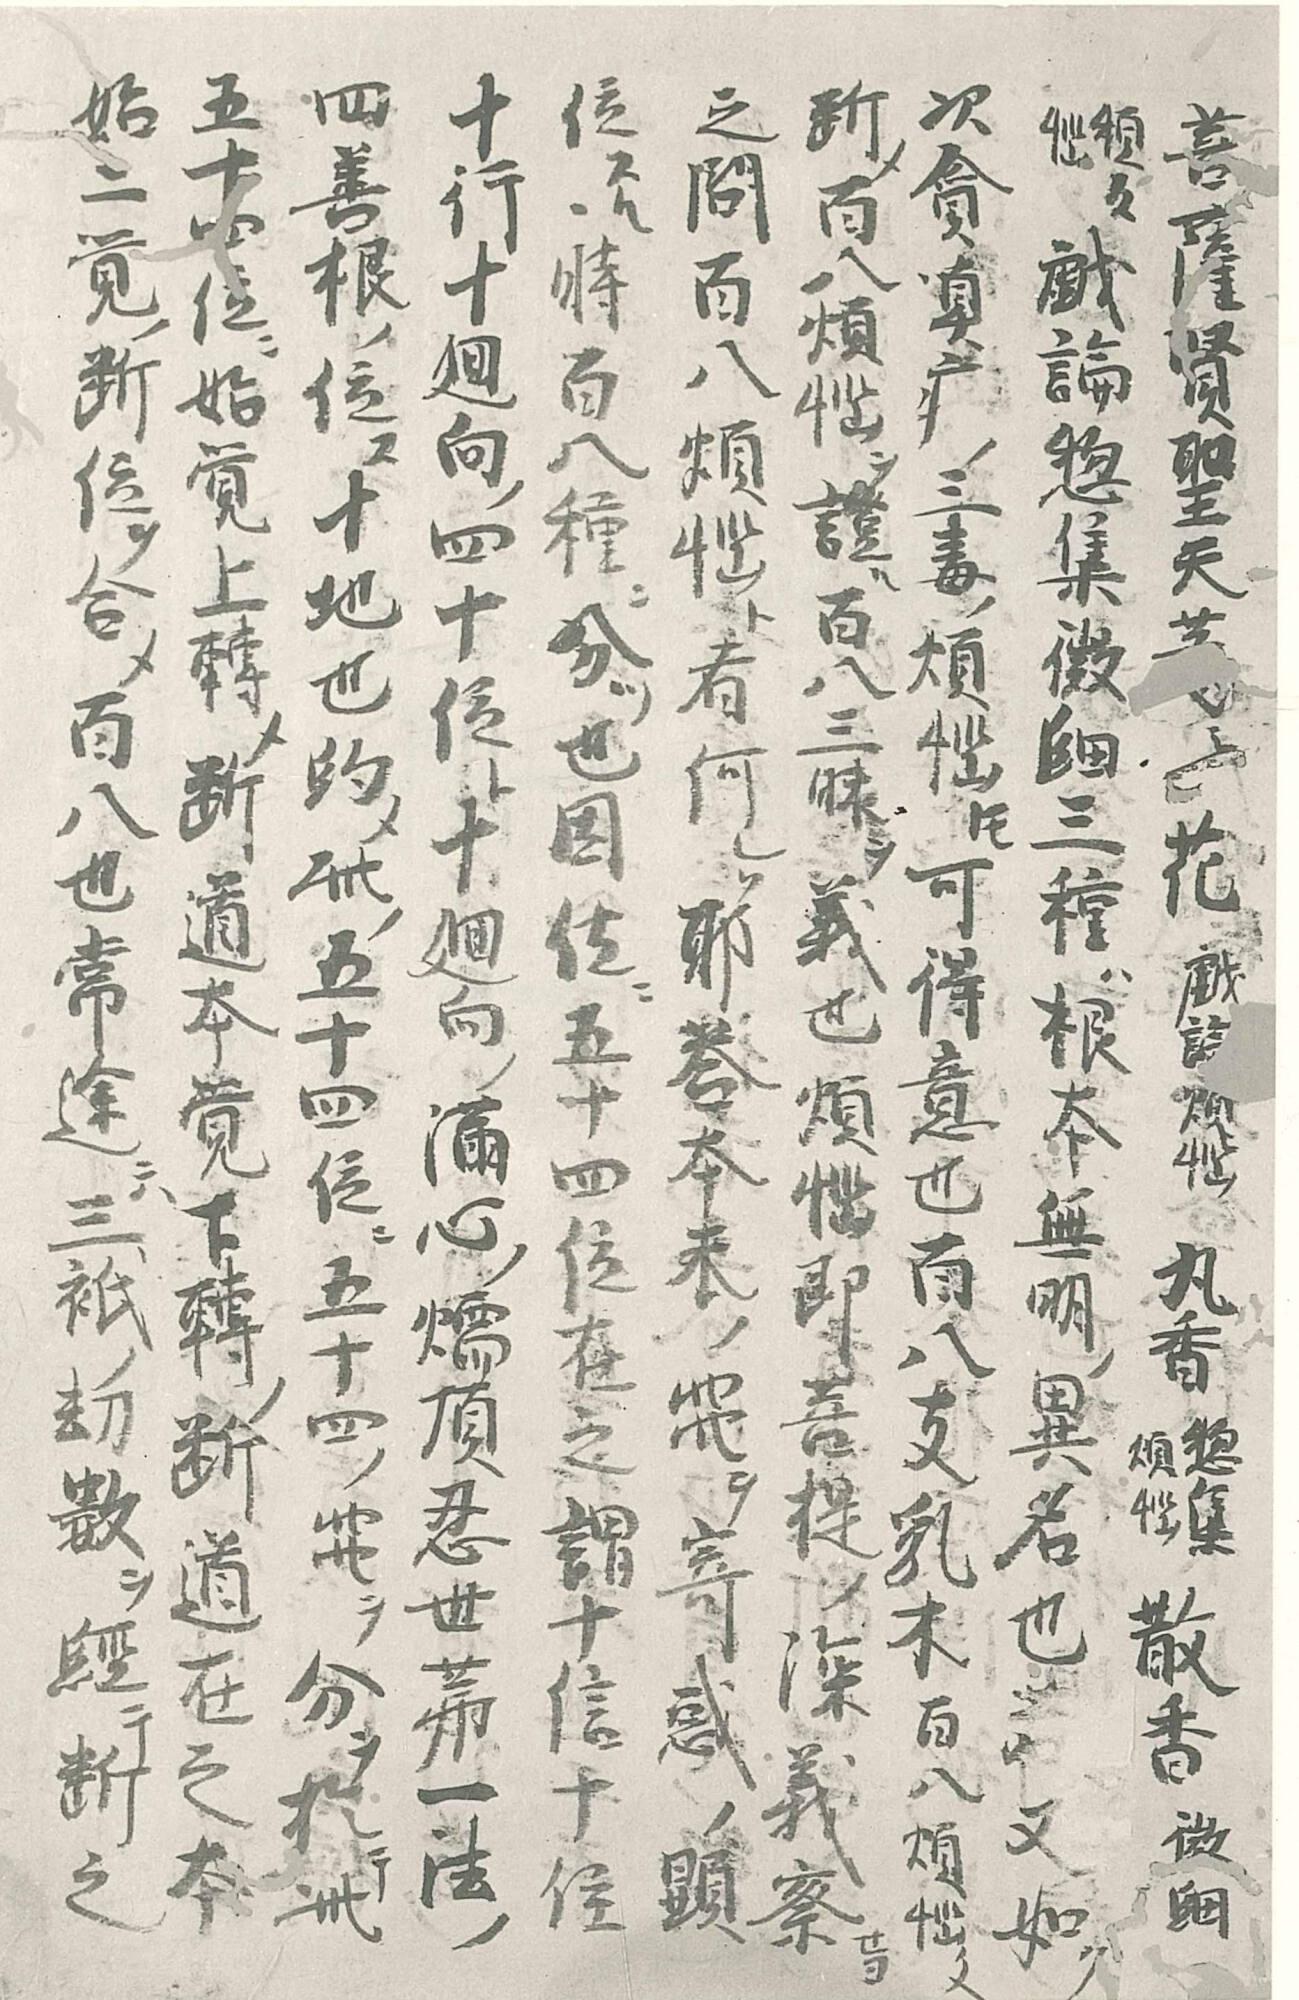 菩薩賢聖天等 花 戯論煩悩 丸香 惣集煩悩 散香 微細
煩悩 戯論惣集微細三種ハ根本無明ノ異名也 又如
次貪嗔疒ノ三毒ノ煩悩トモ可得意也百八支乳木百八煩悩ヲ
断メ百八煩悩ヲ證百八三昧ヲ義也煩悩即菩提ノ深義察
之問百八煩悩ト者何ソ耶答本来ノ ヲ寄惑ノ顕
位スル時百八種ニ分ツ也因位ニ五十四位在之謂十信十住
十行十廻向ノ四十位ト十廻向ノ満心ノ煗頂忍世第一法ノ
四善根ノ位ス十地也約メ此ノ五十四位ニ五十四ノ ヲ分ツ於テ此
五十四位ニ始覚上轉メ断道本覚下轉ノ断道在之本
始二覚ノ断位ヲ合メ百八也常途ニハ三祇ノ劫数ヲ經テ断之